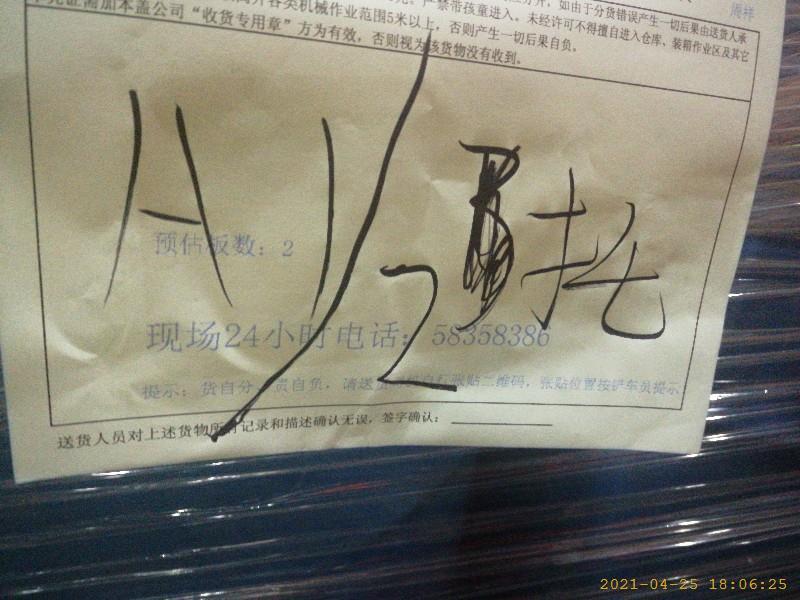 周祥
严禁带孩童进入。未经许可不得擅自进入仓库、装箱作业区及其它
各类机械作业范围5米以上，否则产生一切后果自负。
本盖公司“收货专用章”方为有效，否则视为该货物没有收到。
1/2
托
预估板数：2
现场24小时电话：58358386
提示：货自分，责自负，请送货 自行张贴二维码，张贴位置按铲车员提示
送货人员对上述货物所 记录和描述确认无误，签字确认：
2021-04-25 18:06:25